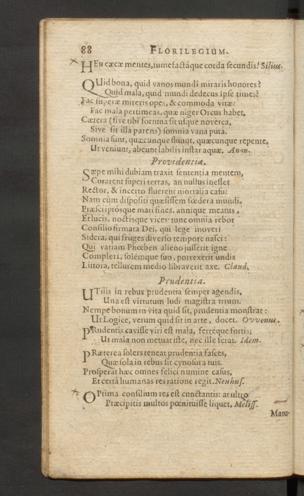 88 FLORILEGIUM.
HEu cæcæ mentes, tumefactáque corda secundis! Silius.
QUid bona, quid vanos mundi miraris honores?
Quid mala, quid mundi dedecus ipse times?
Fac superæ miteris opei, & commoda vitæ:
Fac mala pertimeas, quæ niger Orcus habet.
Cætera (sive tibi fortuna sit usque noverca,
Sive sit illa parens) somnia vana puta.
Somnia sunt, quæcunque fluunt, quæcunque repente,
Ut veniunt, abeunt labilis instar aquæ. Anon.
Providentia.
SÆpe mihi dubiam traxit sententia mentem,
Curarent superi terras, an nullus inesset
Rector, & incerto fluerent mortalia casu:
Nam cùm dispositi quæsissem fœdera mundi,
Præscriptósque mari fines, annique meatus,
Et lucis, noctisque vices: tunc omnia rebar
Consilio firmata Dei, qui lege moveri
Sidera, qui fruges diverso tempore nasci:
Qui variam Phœben alieno jusserit igne
Compleri, solémque suo, porrexerit undis
Littora, tellurem medio libraverit axe. Claud.
Prudentia.
UTilis in rebus prudentia semper agendis,
Una est virtutum ludi magistra trium.
Nempe bonum in vita quid sit, prudentia monstrat:
Ut Logice, verum quid sit in arte, docet. Ovvenus.
PRudentis cavisse viri est mala, ferréque fortis:
Ut mala non metuat iste, nec ille ferat. Idem.
PRæterea solers teneat prudentia fasces,
Quæ sola in rebus sit cynosura tuis.
Prosperat hæc omnes felici numine casus,
Et certa humanas res ratione regit. Neuhus.
OPtima consilium res est cunctantis: at ultro
Præcipitis multos pœnituisse liquet. Meliss.